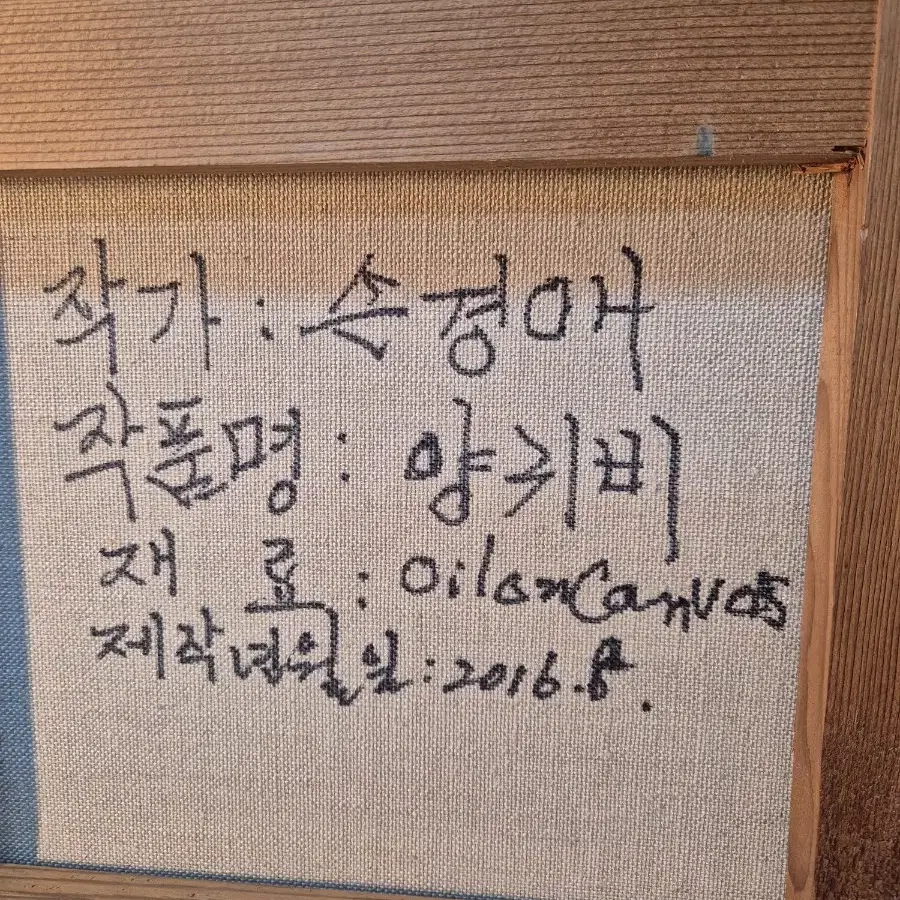 작가: 손경애
작품명: 양귀비
재 료: Oil on Canvas
제작년월일: 2016.8.